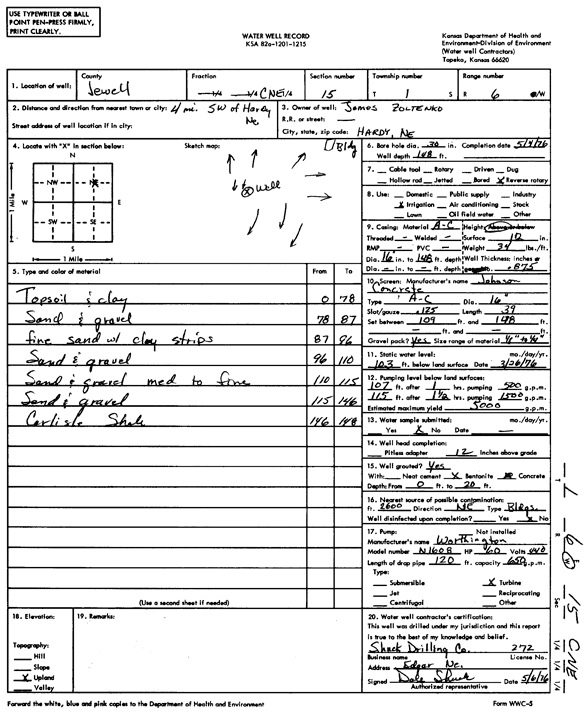 USE TYPEWRITER OR BALL
POINT PEN-PRESS FIRMLY,
PRINT CLEARLY.
WATER WELL RECORD
KSA 82a-1201-1215
Kansas Department of Health and
Environment-Division of Environment
(Water well Contractors)
Topeka, Kansas 66620
1. Location of well: County Jewell Fraction 1/4 1/4 CNE 1/4 Section number 15 Township number T 1 S Range number R 6 E/W
2. Distance and direction from nearest town or city: 4 mi. SW of Hardy Ne
Street address of well location if in city:
3. Owner of well: James Zoltenko
R.R. or street:
City, state, zip code: Hardy, Ne
4. Locate with "X" in section below: Sketch map:
N
NW NE
W E
SW SE
S
1 Mile
1 Mile
Bldg
Well
5. Type and color of material From To
Topsoil & clay 0 78
Sand & gravel 78 87
fine sand w/ clay strips 87 96
Sand & gravel 96 110
Sand & gravel med to fine 110 115
Sand & gravel 115 146
Carlisle Shale 146 148
(Use a second sheet if needed)
6. Bore hole dia. 30 in. Completion date 5/4/76
Well depth 148 ft.
7. Cable tool Rotary Driven Dug
Hollow rod Jetted Bored X Reverse rotary
8. Use: Domestic Public supply Industry
X Irrigation Air conditioning Stock
Lawn Oil field water Other
9. Casing: Material A-C Height: Above or below
Threaded - Welded - Surface 12 in.
RMP - PVC - Weight 34 lbs./ft.
Dia. 16 in. to 148 ft. depth Wall Thickness: inches or
Dia. - in. to - ft. depth .875
10. Screen: Manufacturer's name Johnson
Concrete
Type A-C Dia. 16"
Slot/gauze .125 Length 39
Set between 109 ft. and 148 ft.
ft. and - ft.
Gravel pack? Yes Size range of material
11. Static water level: mo./day/yr.
103 ft. below land surface Date 3/26/76
12. Pumping level below land surfaces:
107 ft. after 1 hrs. pumping 500 g.p.m.
115 ft. after 1 1/2 hrs. pumping 1500 g.p.m.
Estimated maximum yield 5000 g.p.m.
13. Water sample submitted: mo./day/yr.
Yes X No Date
14. Well head completion:
Pitless adapter 12 Inches above grade
15. Well grouted? Yes
With: Neat cement X Bentonite Concrete
Depth: From 0 ft. to 20 ft.
16. Nearest source of possible contamination:
ft. 2600 Direction NE Type Bldgs.
Well disinfected upon completion? Yes X No
17. Pump: Not installed
Manufacturer's name Worthington
Model number HP 60 Volts 440
Length of drop pipe 120 ft. capacity 650 g.p.m.
Type:
Submersible X Turbine
Jet Reciprocating
Centrifugal Other
18. Elevation:
Topography:
Hill
Slope
X Upland
Valley
19. Remarks:
20. Water well contractor's certification:
This well was drilled under my jurisdiction and this report
is true to the best of my knowledge and belief.
Shuck Drilling Co. 272
Business name License No.
Address Edgar Ne.
Signed Dale Shuck Date 5/6/76
Authorized representative
T 1 R 6 W Sec 15 CNE 1/4 1/4 1/4
Forward the white, blue and pink copies to the Department of Health and Environment
Form WWC-5